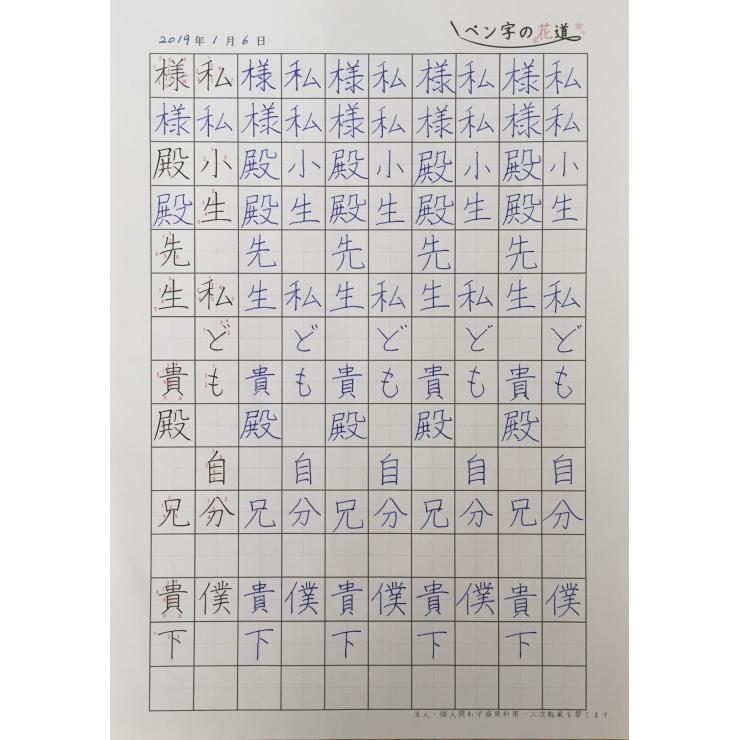 2019年1月6日
ペン字の花道
様私様私様私様私様私
様私様私様私様私様私
殿小殿小殿小殿小殿小
殿生殿生殿生殿生殿生
先 先 先 先 先
生私生私生私生私生私
ど ど ど ど ど
貴も貴も貴も貴も貴も
殿 殿 殿 殿 殿
自 自 自 自 自
兄分兄分兄分兄分兄分
貴僕貴僕貴僕貴僕貴僕
下 下 下 下 下
法人・個人問わず商用利用・二次転載を禁じます